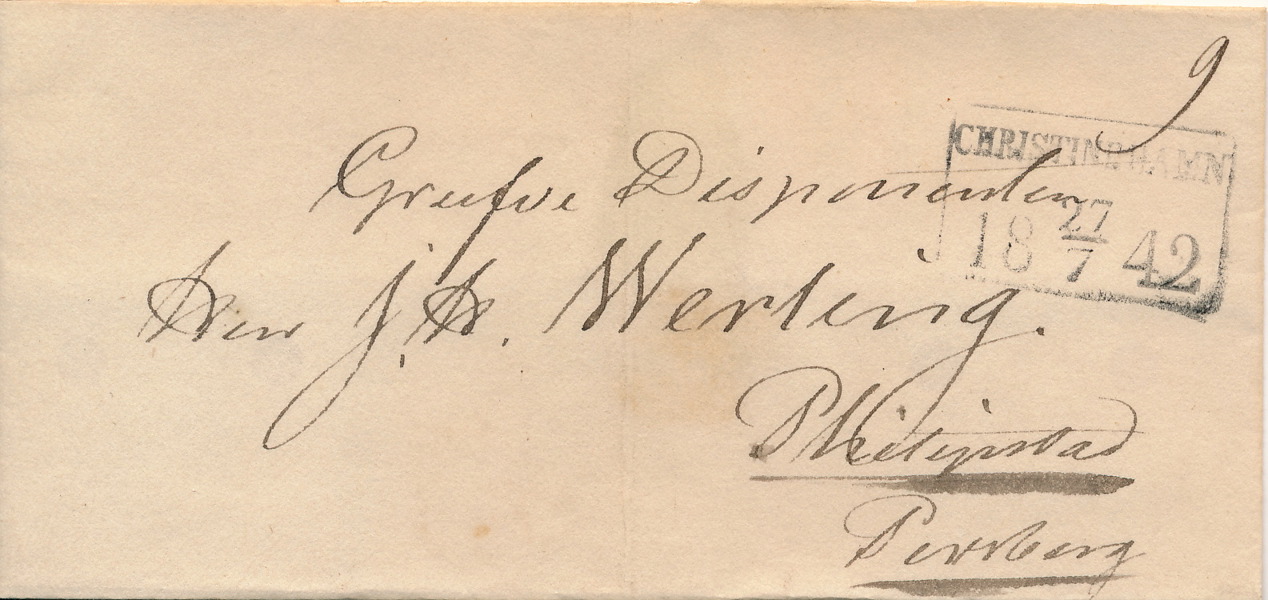 9
CHRISTINEHAMN
18 27/7 42
Grufve Disponenten
Herr J. H. Werling.
Philipstad
Persberg